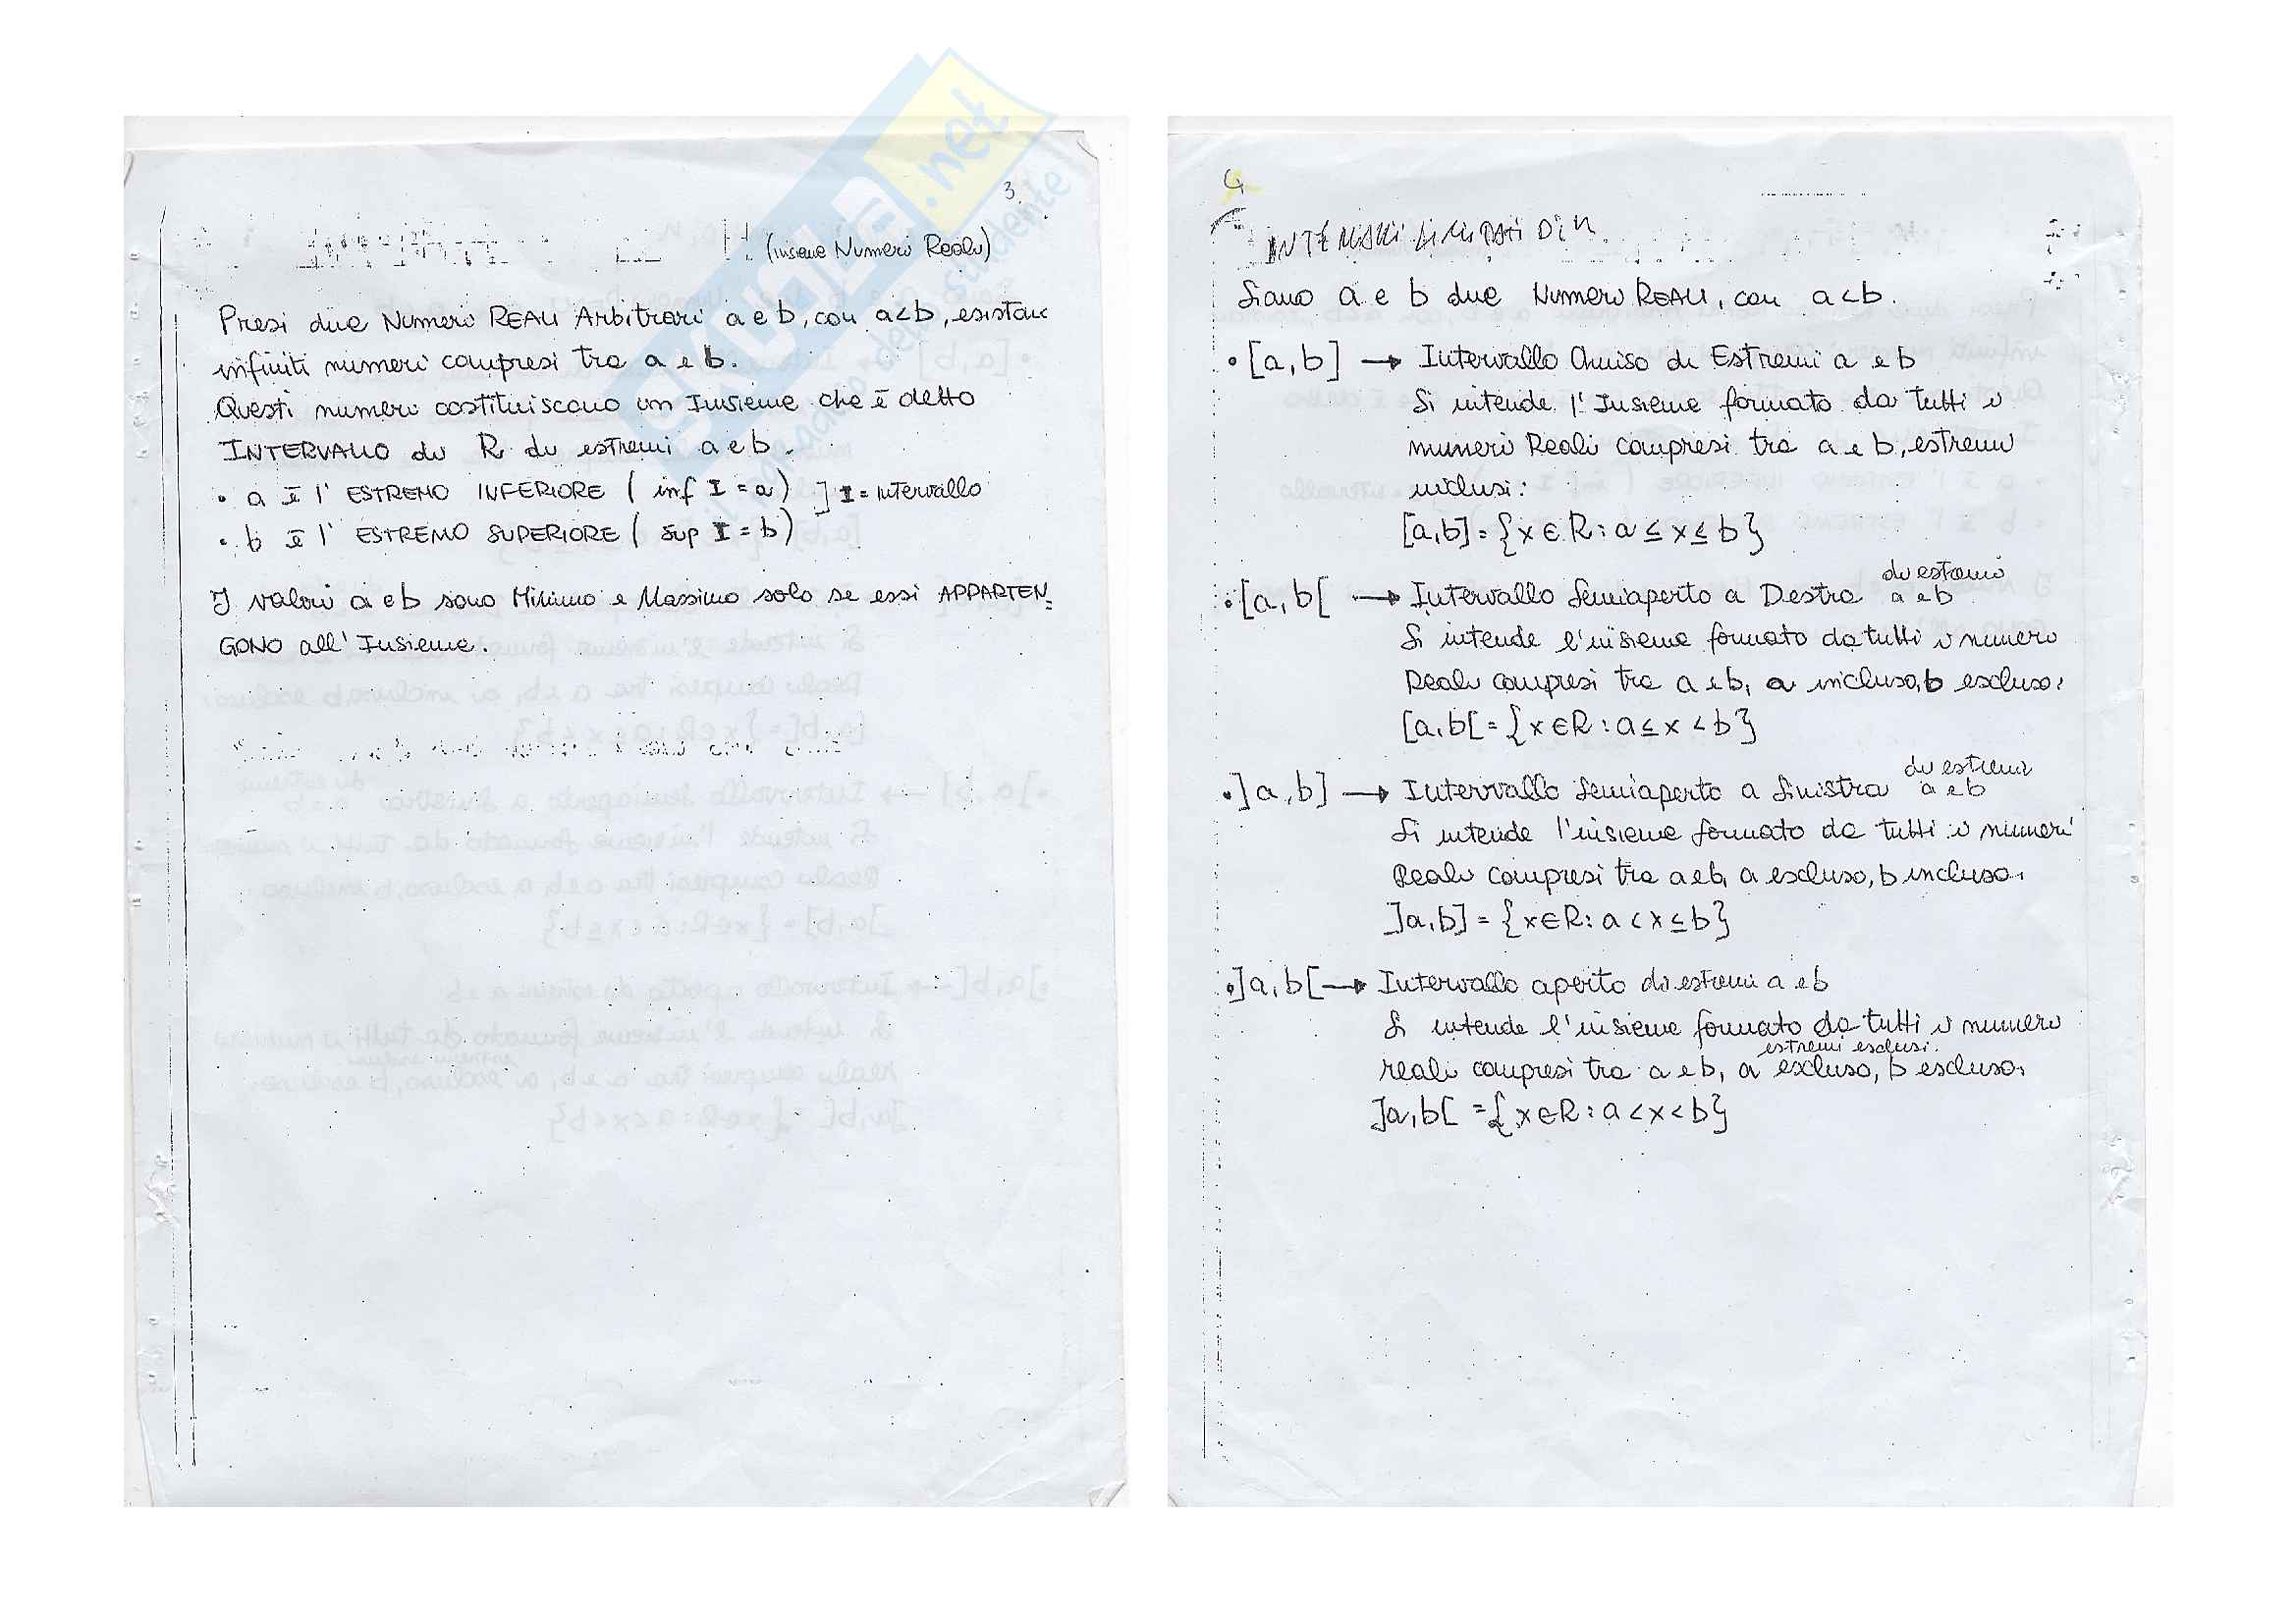 3.
(insieme Numeri Reali)
Presi due Numeri REALI Arbitrari a e b, con a<b, esistono
infiniti numeri compresi tra a e b.
Questi numeri costituiscono un Insieme che è detto
INTERVALLO di R di estremi a e b.
• a è l' ESTREMO INFERIORE ( inf I = a) ] I = intervallo
• b è l' ESTREMO SUPERIORE ( sup I = b)
I valori a e b sono Minimo e Massimo solo se essi APPARTEN=
GONO all'Insieme.
SKUOLA.net
4
INTERVALLI LIMITATI DI
Siano a e b due Numeri REALI, con a<b.
• [a,b] → Intervallo Chiuso di Estremi a e b
Si intende l'Insieme formato da tutti i
numeri Reali compresi tra a e b, estremi
inclusi:
[a,b] = {x ∈ R : a ≤ x ≤ b}
• [a,b[ → Intervallo Semiaperto a Destra di estremi a e b
Si intende l'insieme formato da tutti i numeri
Reali compresi tra a e b, a incluso, b escluso:
[a,b[ = {x ∈ R : a ≤ x < b}
• ]a,b] → Intervallo Semiaperto a Sinistra di estremi a e b
Si intende l'insieme formato da tutti i numeri
Reali compresi tra a e b, a escluso, b incluso.
]a,b] = {x ∈ R : a < x ≤ b}
• ]a,b[ → Intervallo aperto di estremi a e b
Si intende l'insieme formato da tutti i numeri
estremi esclusi.
reali compresi tra a e b, a escluso, b escluso.
]a,b[ = {x ∈ R : a < x < b}